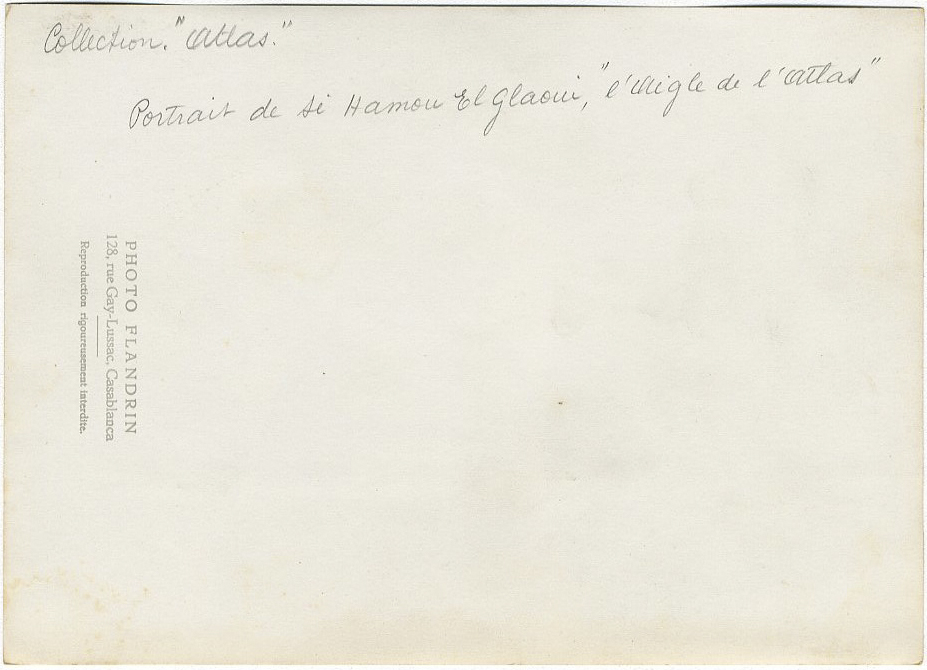 Collection. "Atlas."
Portrait de Si Hamou El Glaoui, "l'Aigle de l'Atlas"
PHOTO FLANDRIN
128, rue Gay-Lussac, Casablanca
Reproduction rigoureusement interdite.